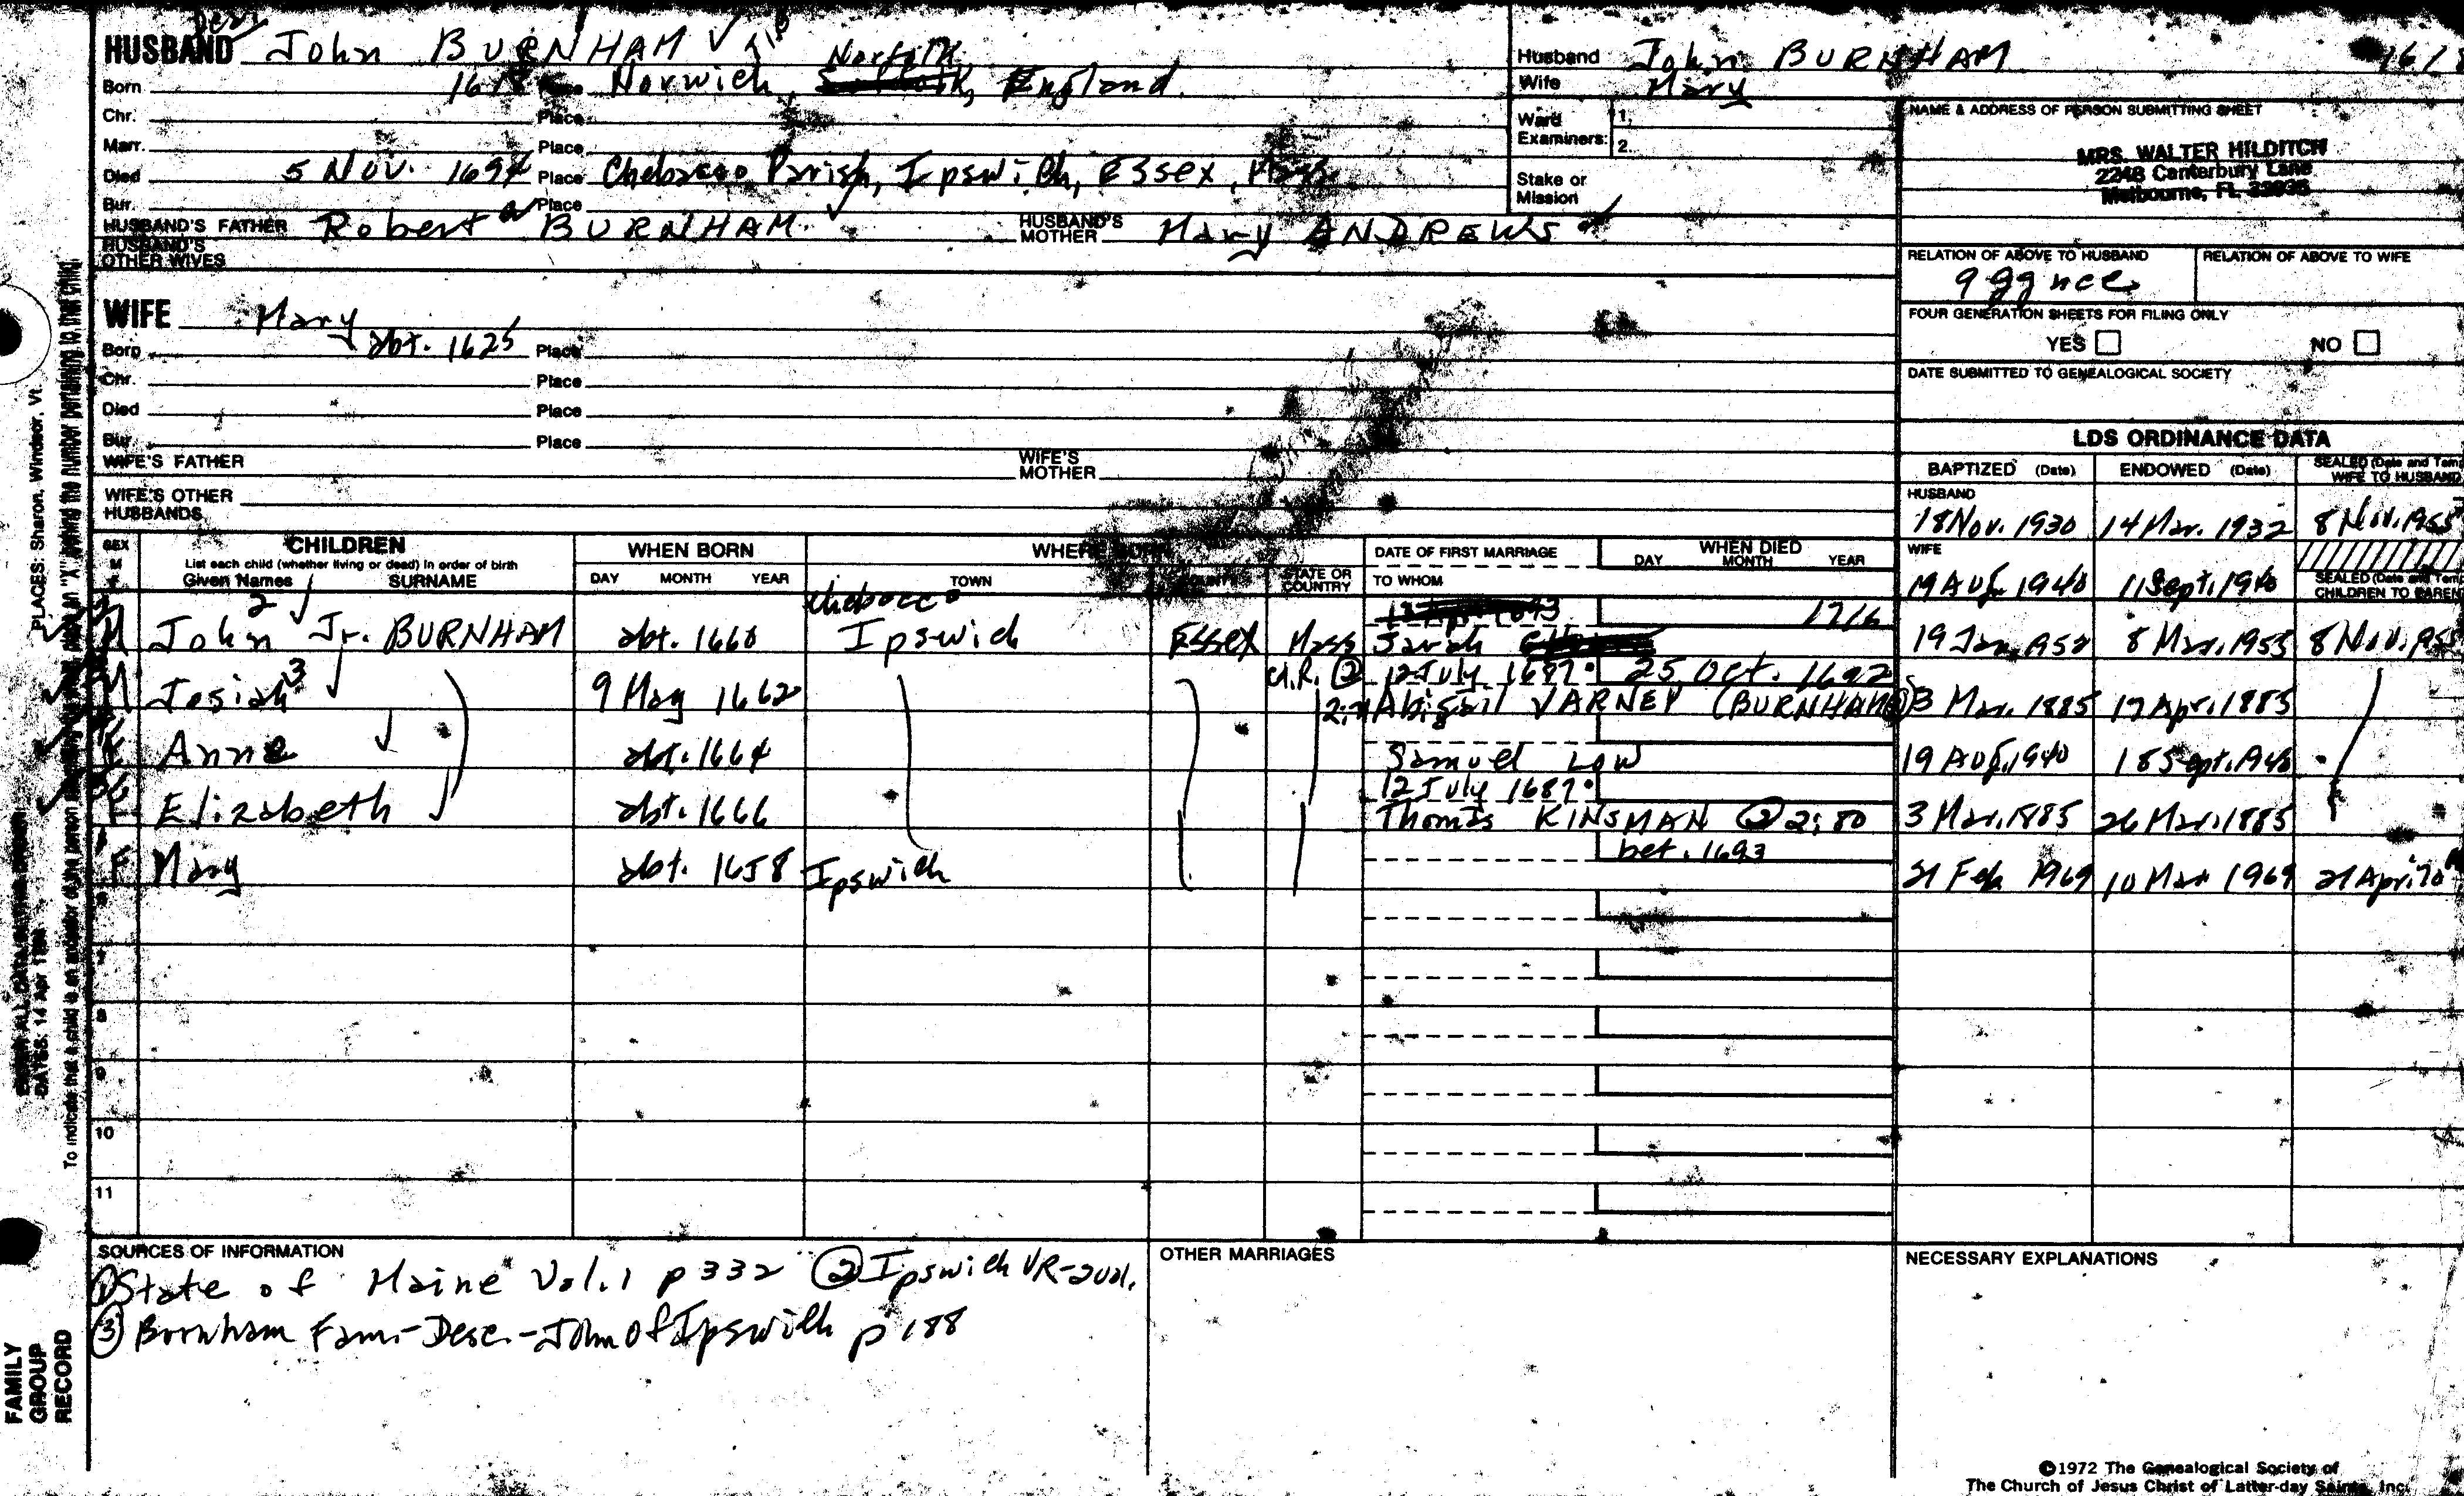 HUSBAND John BURNHAM
Norfolk
Born 1618 Place Norwich, England
Chr. Place
Marr. Place
Died 5 Nov. 1694 Place Chebacco Parish, Ipswich, Essex, Mass
Bur. Place
HUSBAND'S FATHER Robert BURNHAM HUSBAND'S MOTHER Mary ANDREWS
HUSBAND'S OTHER WIVES
WIFE Mary
Born abt. 1625 Place
Chr. Place
Died Place
Bur. Place
WIFE'S FATHER WIFE'S MOTHER
WIFE'S OTHER HUSBANDS
Husband John BURNHAM
Wife Mary
Ward Examiners: 1. 2.
Stake or Mission
NAME & ADDRESS OF PERSON SUBMITTING SHEET
MRS. WALTER HILDITCH
2248 Canterbury Lane
Melbourne, FL
RELATION OF ABOVE TO HUSBAND RELATION OF ABOVE TO WIFE
9 gg nce
FOUR GENERATION SHEETS FOR FILING ONLY
YES NO
DATE SUBMITTED TO GENEALOGICAL SOCIETY
LDS ORDINANCE DATA
BAPTIZED (Date) ENDOWED (Date) SEALED (Date and Tem WIFE TO HUSBAND
HUSBAND
18 Nov. 1930 14 Mar. 1932 8 Nov. 1955
WIFE
19 Aug. 1940 11 Sept. 1940 SEALED (Date and Tem CHILDREN TO PAREN
SEX M F CHILDREN WHEN BORN WHERE BORN DATE OF FIRST MARRIAGE WHEN DIED
List each child (whether living or dead) in order of birth
Given Names SURNAME DAY MONTH YEAR TOWN COUNTY STATE OR COUNTRY TO WHOM DAY MONTH YEAR
2 Chebacco 1716
M John Jr. BURNHAM abt. 1660 Ipswich Essex Mass Sarah 19 Jan 8 Mar. 1955 8 Nov.
12 July 1687 25 Oct. 1692
M Josiah 3 9 May 1662 Abigail VARNEY (BURNHAM 3 Mar. 1885 17 Apr. 1885
F Anne abt. 1664 Samuel Low 19 Aug. 1940 18 Sept. 1940
12 July 1687
F Elizabeth abt. 1666 Thomas KINSMAN ② 2:80 3 Mar. 1885 26 Mar. 1885
bet. 1693
F Mary abt. 1658 Ipswich 21 Feb 1969 10 Mar 1969 21 Apr.
8
9
10
11
SOURCES OF INFORMATION
① State of Maine Vol. 1 p 332 ② Ipswich VR-2vol.
③ Burnham Fam.-Desc.-John of Ipswich p 188
OTHER MARRIAGES
NECESSARY EXPLANATIONS
©1972 The Genealogical Society of
The Church of Jesus Christ of Latter-day Saints, Inc.
PLACES: Sharon, Windsor, Vt.
DATES: 14 Apr
FAMILY
GROUP
RECORD